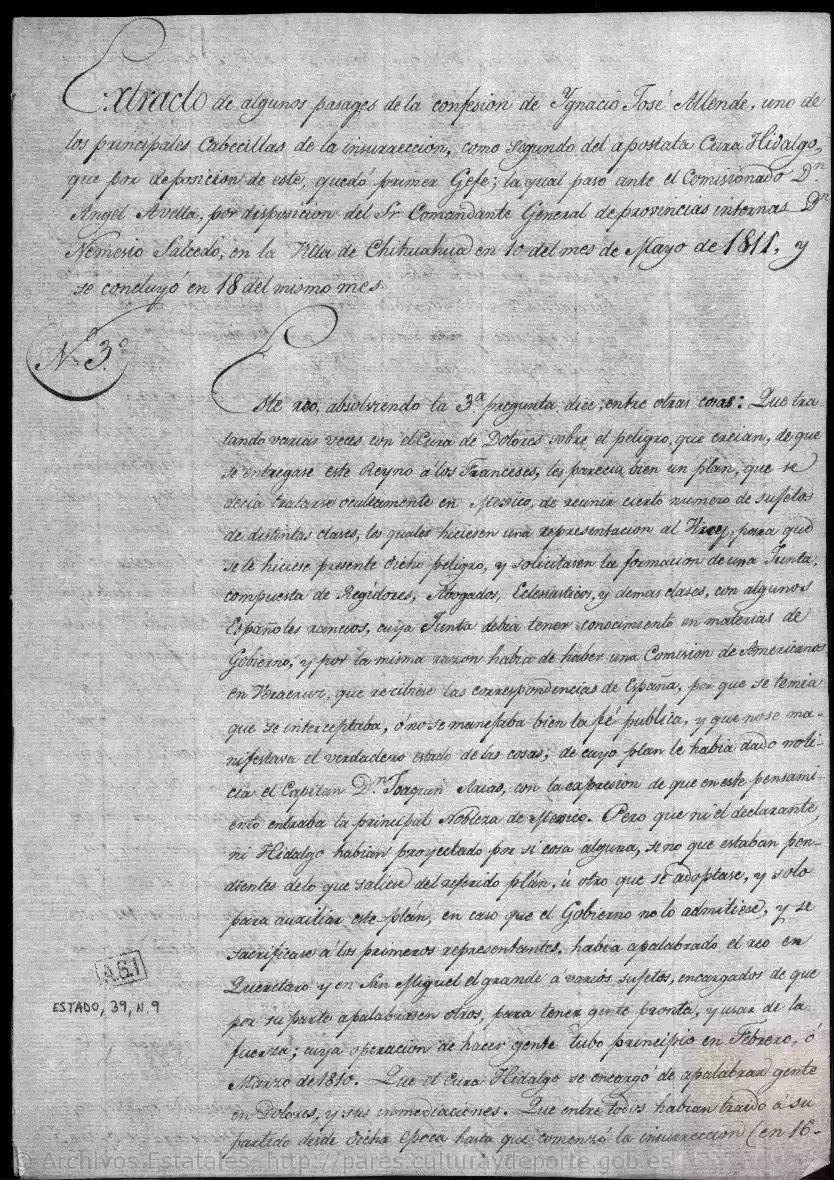 Extracto de algunos pasages de la confesion de Ygnacio José Allende, uno de
los principales Cabecillas de la insurreccion, como segundo del apostata Cura Hidalgo,
que por deposicion de este, quedó primer Gefe; la qual pasó ante el Comisionado Dn.
Angel Avella, por disposicion del Sr. Comandante General de provincias internas Dn
Nemesio Salcedo, en la Villa de Chihuahua en 10 del mes de Mayo de 1811, y
se concluyó en 18 del mismo mes.
No 3.º
Este reo, absolviendo la 3.ª pregunta, dice, entre otras cosas: Que tra-
tando varias veces con el Cura de Dolores sobre el peligro, que creian, de que
se entregase este Reyno á los Franceses, les parecia bien un plan, que se
decia tratarse ocultamente en Mexico, de reunir cierto numero de sujetos
de distintas clases, los quales hiciesen una representacion al Virrey, para que
se le hiciese presente dicho peligro, y solicitasen la formacion de una Junta,
compuesta de Regidores, Abogados, Eclesiasticos, y demas clases, con algunos
Españoles rancios, cuya Junta debia tener conocimiento en materias de
Gobierno, y por la misma razon habia de haber una Comision de Americanos
en Veracruz, que recibiese las correspondencias de España, por que se temia
que se interceptaba, ó no se manejaba bien la fé publica, y que no se ma-
nifestava el verdadero estado de las cosas; de cuyo plan le habia dado noti-
cia el Capitan Dn. Joaquin Arias, con la expresion de que en este pensami-
ento entraba la principal Nobleza de Mexico. Pero que ni el declarante,
ni Hidalgo habian proyectado por si cosa alguna, si no que estaban pen-
dientes de lo que saliese del referido plán, ú otro que se adoptase, y solo
para auxiliar este plán, en caso que el Gobierno no lo admitiese, y se
sacrificase á los primeros representantes, habia apalabrado el reo en
Queretaro y en San Miguel el grande á varios sujetos, encargados de que
por su parte apalabrasen otros, para tener gente pronta, y usar de la
fuerza; cuya operacion de hacer gente tubo principio en Febrero, ó
Marzo de 1810. Que el Cura Hidalgo se encargó de apalabrar gente
en Dolores, y sus inmediaciones. Que entre todos habian traido á su
partido desde dicha epoca hasta que comenzó la insurreccion (en 16-
A.G.I
ESTADO, 39, N. 9
© Archivos Estatales - http://pares.culturaydeporte.gob.es